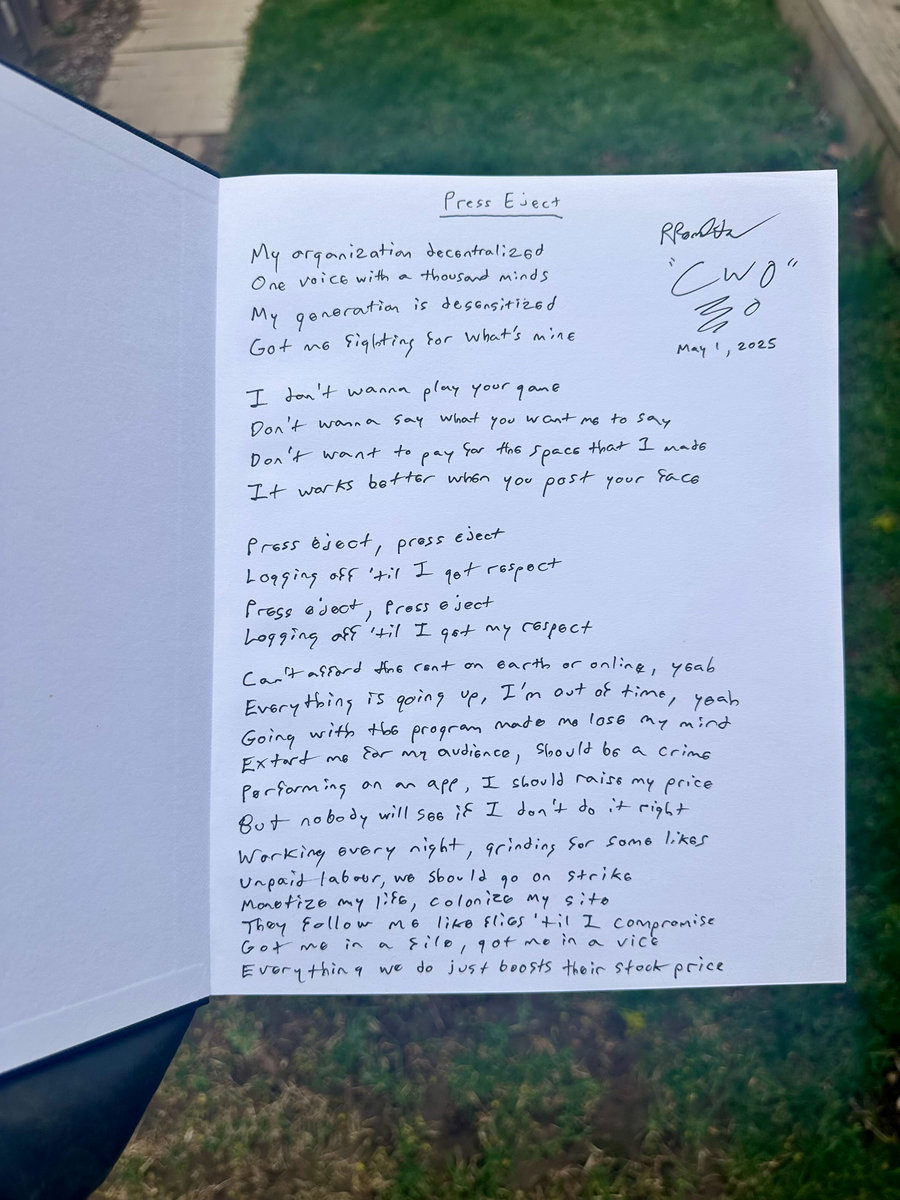 Press Eject
"CWO"
May 1, 2025
My organization decentralized
One voice with a thousand minds
My generation is desensitized
Got me fighting for what's mine
I don't wanna play your game
Don't wanna say what you want me to say
Don't want to pay for the space that I made
It works better when you post your face
Press eject, press eject
Logging off 'til I get respect
Press eject, press eject
Logging off 'til I get my respect
Can't afford the rent on earth or online, yeah
Everything is going up, I'm out of time, yeah
Going with the program made me lose my mind
Extort me for my audience, should be a crime
Performing on an app, I should raise my price
But nobody will see if I don't do it right
Working every night, grinding for some likes
Unpaid labour, we should go on strike
Monetize my life, colonize my site
They follow me like flies 'til I compromise
Got me in a file, got me in a vice
Everything we do just boosts their stock price